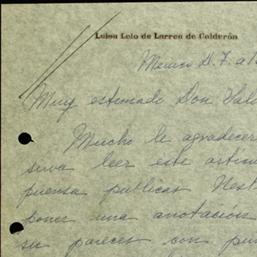 Luisa Leio de Larrea de Calderón
Mexico D. F. a 1
Muy estimado Don Val
Mucho le agradecer
serva leer este artícu
puensa publicas Vest
poner una anotación
su pareces con pu